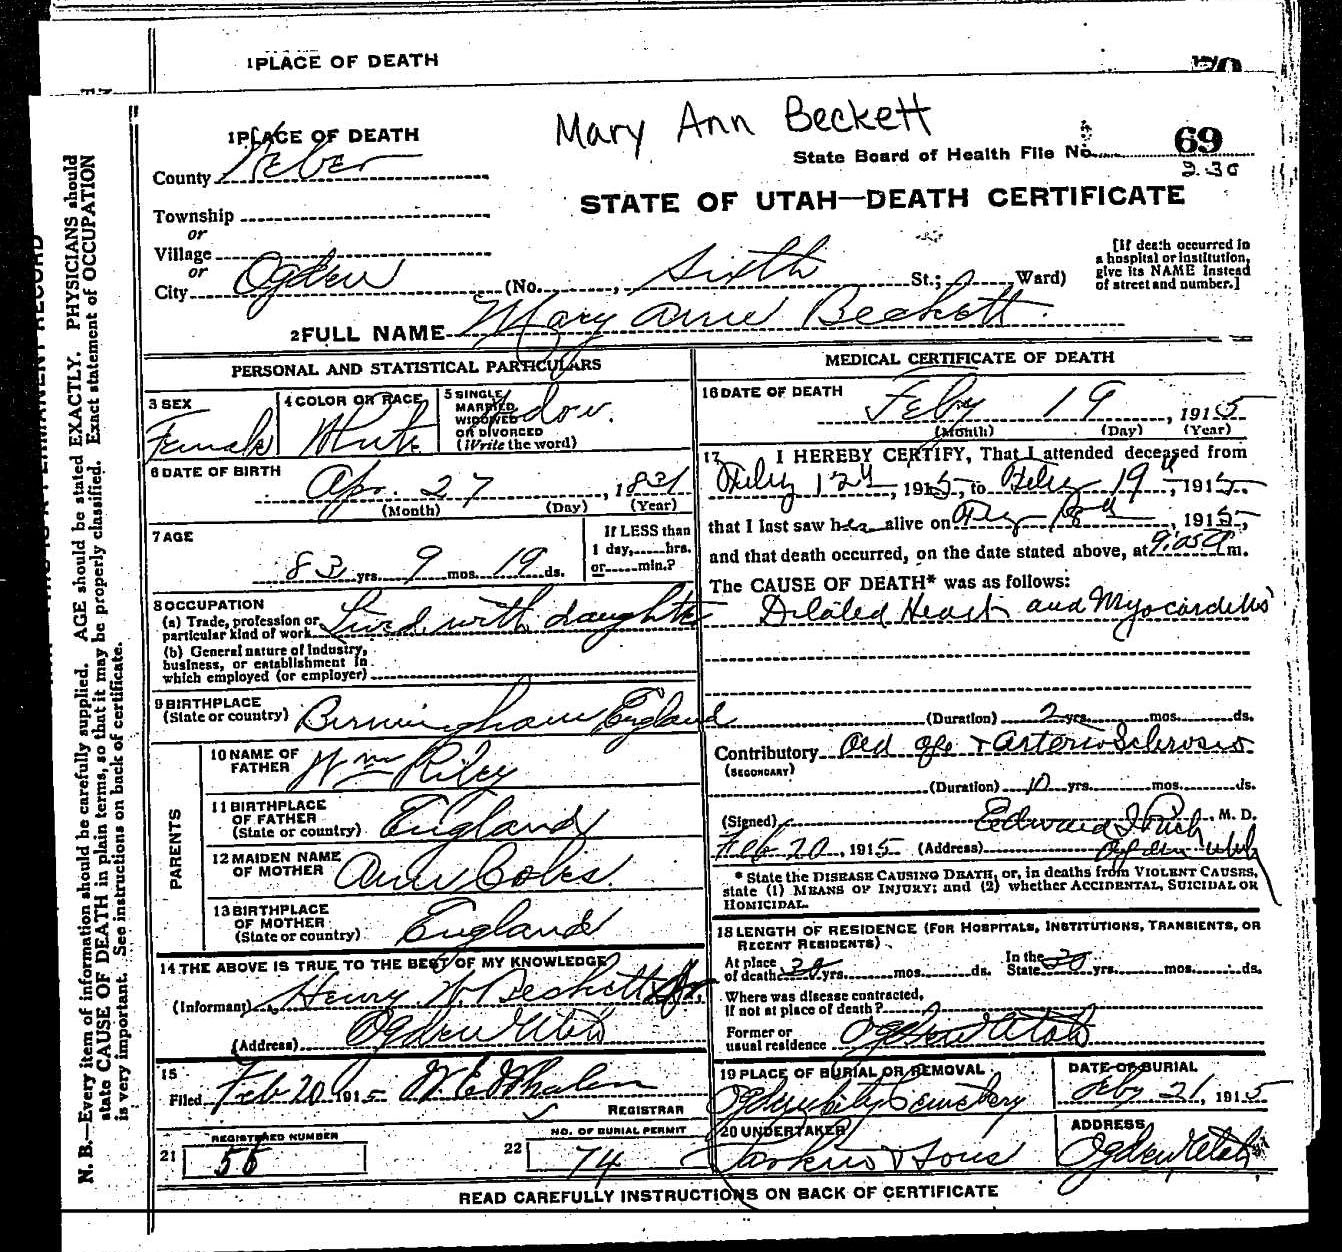 1 PLACE OF DEATH
70
Mary Ann Beckett
1 PLACE OF DEATH
County Weber
State Board of Health File No. 69
230
Township
or
Village
or
City Ogden (No. , Sixth St.; Ward)
STATE OF UTAH—DEATH CERTIFICATE
[If death occurred in
a hospital or institution,
give its NAME instead
of street and number.]
2 FULL NAME Mary Ann Beckett
PERSONAL AND STATISTICAL PARTICULARS
3 SEX
Female
4 COLOR OR RACE
White
5 SINGLE
MARRIED
WIDOWED
OR DIVORCED
(Write the word)
Widow.
6 DATE OF BIRTH
Apr. 27, 1831
(Month) (Day) (Year)
7 AGE
83 yrs. 9 mos. 19 ds.
If LESS than
1 day, hrs.
or min.?
8 OCCUPATION
(a) Trade, profession or
particular kind of work Lived with daughter
(b) General nature of industry,
business, or establishment in
which employed (or employer)
9 BIRTHPLACE
(State or country) Birmingham England
PARENTS
10 NAME OF
FATHER Wm Riley
11 BIRTHPLACE
OF FATHER
(State or country) England
12 MAIDEN NAME
OF MOTHER Ann Coles.
13 BIRTHPLACE
OF MOTHER
(State or country) England
14 THE ABOVE IS TRUE TO THE BEST OF MY KNOWLEDGE
(Informant) Henry W Beckett Jr.
(Address) Ogden Utah
15
Filed Feb 20 1915 W. E. Whalen
REGISTRAR
REGISTERED NUMBER
21 56
NO. OF BURIAL PERMIT
22 74
MEDICAL CERTIFICATE OF DEATH
16 DATE OF DEATH
Feby 19, 1915
(Month) (Day) (Year)
17 I HEREBY CERTIFY, That I attended deceased from
Feby 12th, 1915, to Feby 19th, 1915
that I last saw her alive on Feby 18th, 1915,
and that death occurred, on the date stated above, at 9:05 A m.
The CAUSE OF DEATH* was as follows:
Dilated Heart and Myocarditis
(Duration) 2 yrs. mos. ds.
Contributory Old age + Arterio Sclerosis
(SECONDARY)
(Duration) 10 yrs. mos. ds.
(Signed) Edward I Rich, M. D.
Feb 20, 1915 (Address) Ogden Utah
* State the DISEASE CAUSING DEATH, or, in deaths from VIOLENT CAUSES,
state (1) MEANS OF INJURY; and (2) whether ACCIDENTAL, SUICIDAL OR
HOMICIDAL.
18 LENGTH OF RESIDENCE (FOR HOSPITALS, INSTITUTIONS, TRANSIENTS, OR
RECENT RESIDENTS)
At place
of death yrs. mos. ds.
In the
State 30 yrs. mos. ds.
Where was disease contracted,
if not at place of death?
Former or
usual residence Ogden Utah
19 PLACE OF BURIAL OR REMOVAL
Ogden City Cemetery
DATE OF BURIAL
Feby 21, 1915
20 UNDERTAKER
Larkin & Sons
ADDRESS
Ogden Utah
READ CAREFULLY INSTRUCTIONS ON BACK OF CERTIFICATE
N. B.—Every item of information should be carefully supplied. AGE should be stated EXACTLY. PHYSICIANS should
state CAUSE OF DEATH in plain terms, so that it may be properly classified. Exact statement of OCCUPATION
is very important. See instructions on back of certificate.